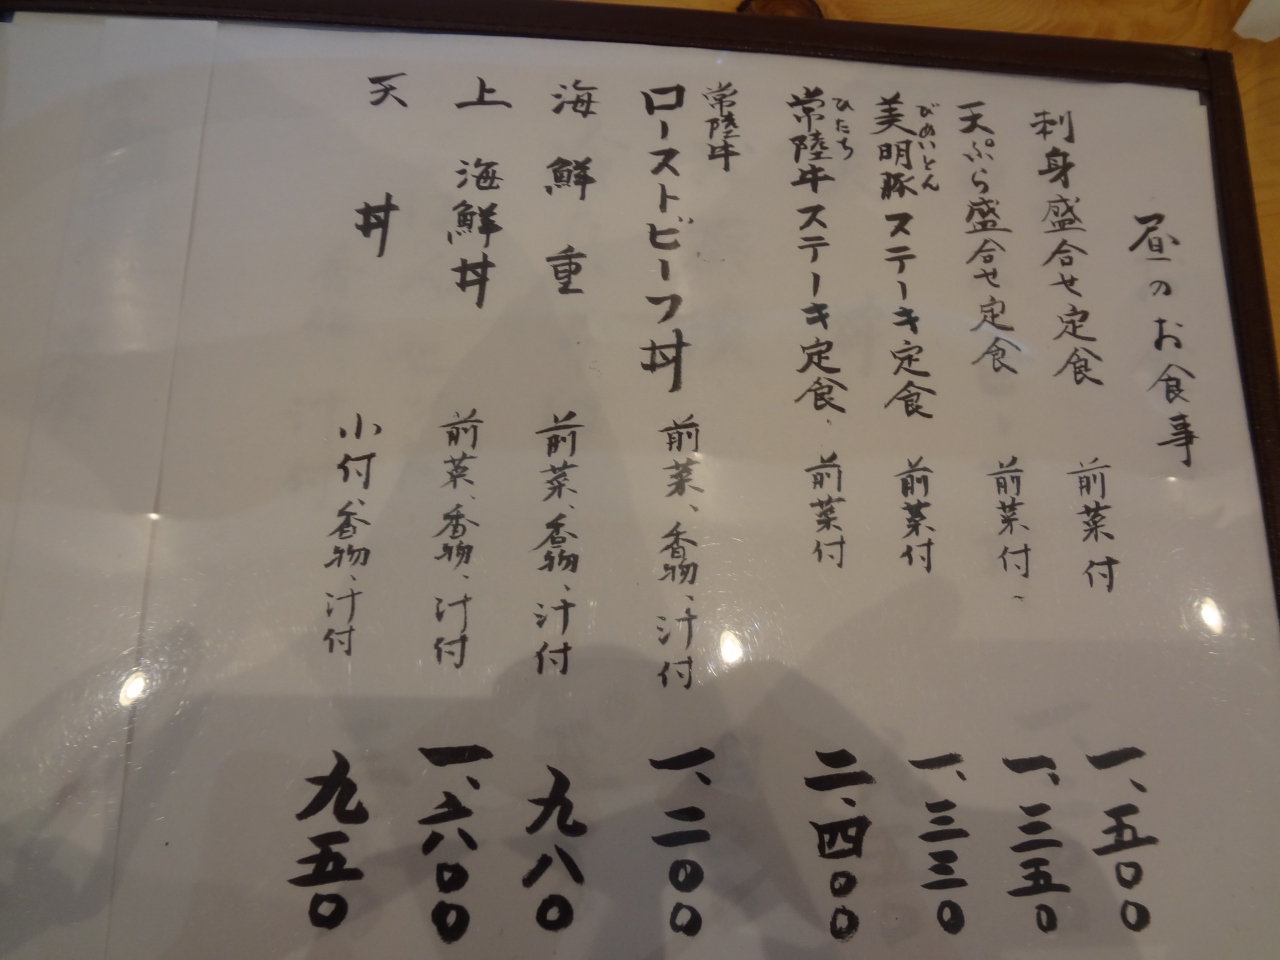 昼のお食事
刺身盛合せ定食 前菜付 一、五〇〇
天ぷら盛合せ定食 前菜付 一、三五〇
びめいとん
美明豚ステーキ定食 前菜付 一、三三〇
ひたち
常陸牛ステーキ定食 前菜付 二、四〇〇
常陸牛
ローストビーフ丼 前菜、香物、汁付 一、二〇〇
海鮮重 前菜、香物、汁付 九八〇
上海鮮丼 前菜、香物、汁付 一、六〇〇
天丼 小付、香物、汁付 九五〇